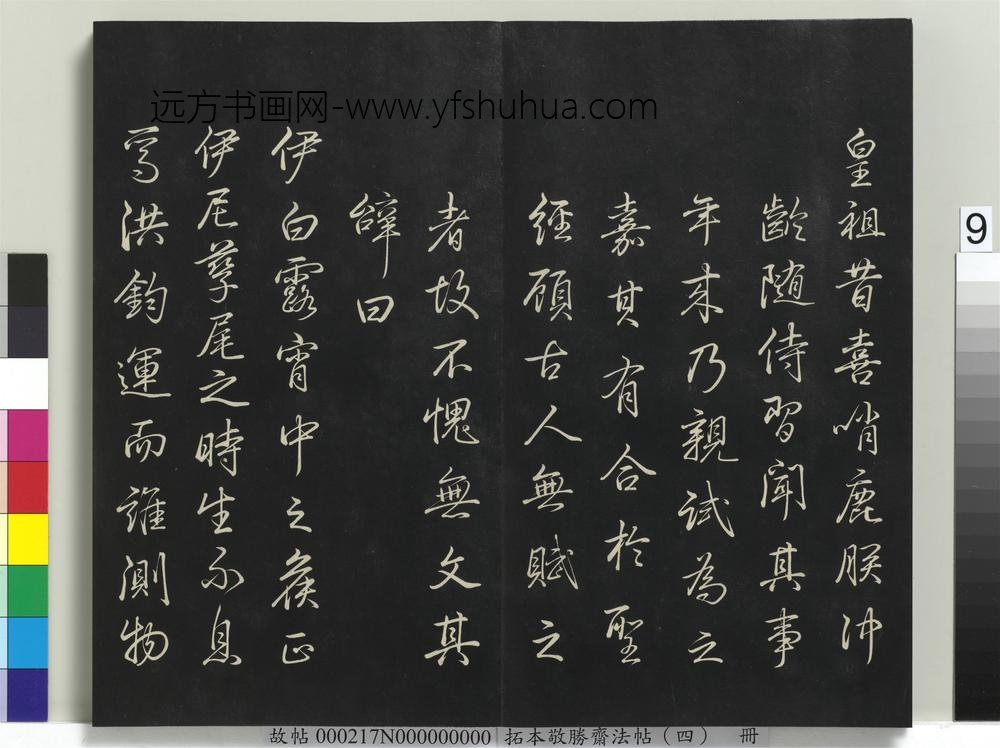 远方书画网-www.yfshuhua.com
皇祖昔喜哨鹿朕冲
齡随侍習聞其事
年来乃親試為之
嘉其有合於聖
經顧古人無賦之
者故不愧無文其
辭曰
伊白露宵中之候正
伊尼孳尾之時生不息
焉洪鈞運而誰測物
9
故帖 000217N000000000 拓本敬勝齋法帖（四） 冊